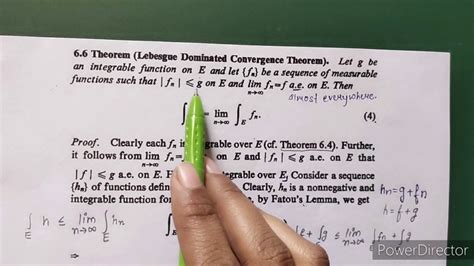 6.6 Theorem (Lebesgue Dominated Convergence Theorem). Let g be
an integrable function on E and let {fₙ} be a sequence of measurable
functions such that |fₙ| ⩽ g on E and lim fₙ=f a.e. on E. Then
n→∞
almost everywhere
∫ = lim ∫ fₙ. (4)
n→∞ E
Proof. Clearly each fₙ integrable over E (cf. Theorem 6.4). Further,
it follows from lim fₙ= on E and |fₙ| ⩽ g a.e. on E that
n→∞
|f| ⩽ g a.e. on E. over E. Consider a sequence
{hₙ} of functions defin Clearly, hₙ is a nonnegative and
integrable function for , by Fatou's Lemma, we get
hₙ=g+fₙ
h=f+g
∫ h ≤ lim ∫ hₙ
E n→∞ E
∫f+∫g ≤ lim ∫fₙ + ∫g
n→∞
⇒
PowerDirector